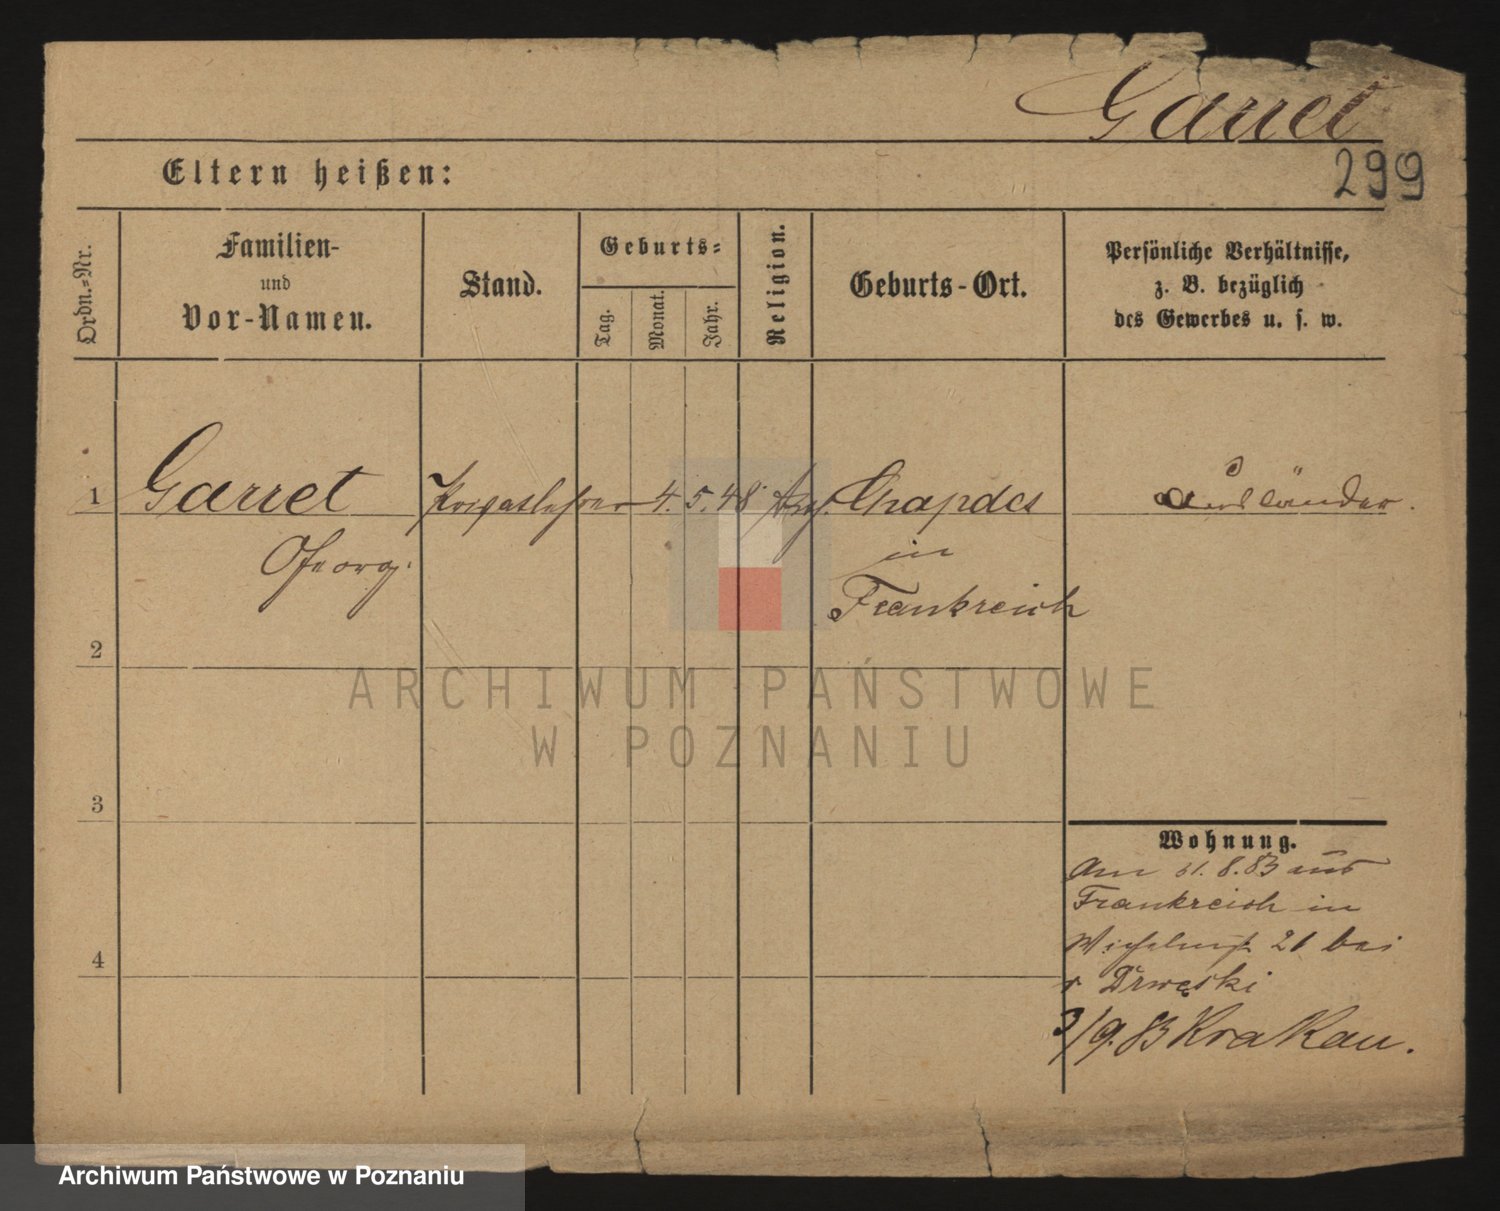 Garret
299
Eltern heißen:
Ordn.-Nr.
Familien-
und
Vor-Namen.
Stand.
Geburts-
Tag.
Monat.
Jahr.
Religion.
Geburts-Ort.
Persönliche Verhältnisse,
z. B. bezüglich
des Gewerbes u. s. w.
1 Garret Privatlehrer 4. 5. 48 Chapdes Ausländer.
Georg. in
Frankreich
2
ARCHIWUM PAŃSTWOWE
W POZNANIU
3
Wohnung.
Am 31. 8. 83 aus
Frankreich in
4
21 bei
v Drwęski
3/9. 83 Krakau.
Archiwum Państwowe w Poznaniu